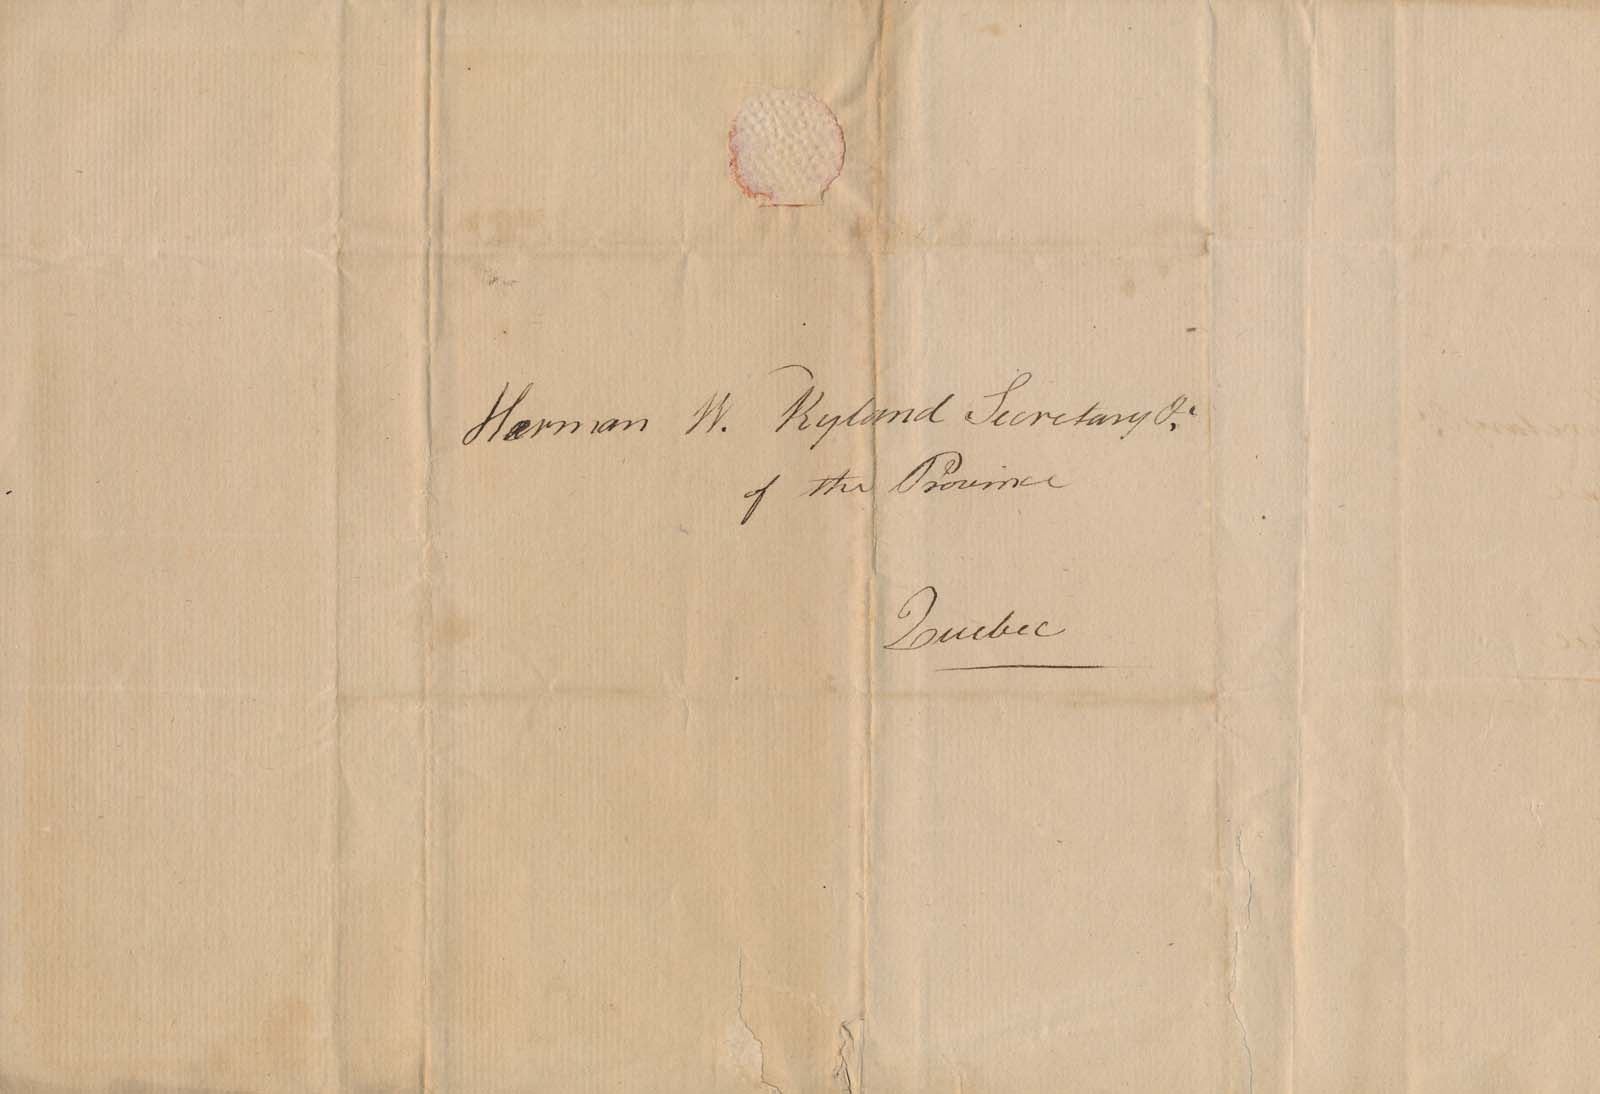 Herman W. Ryland Secretary &c
of the Province
Quebec